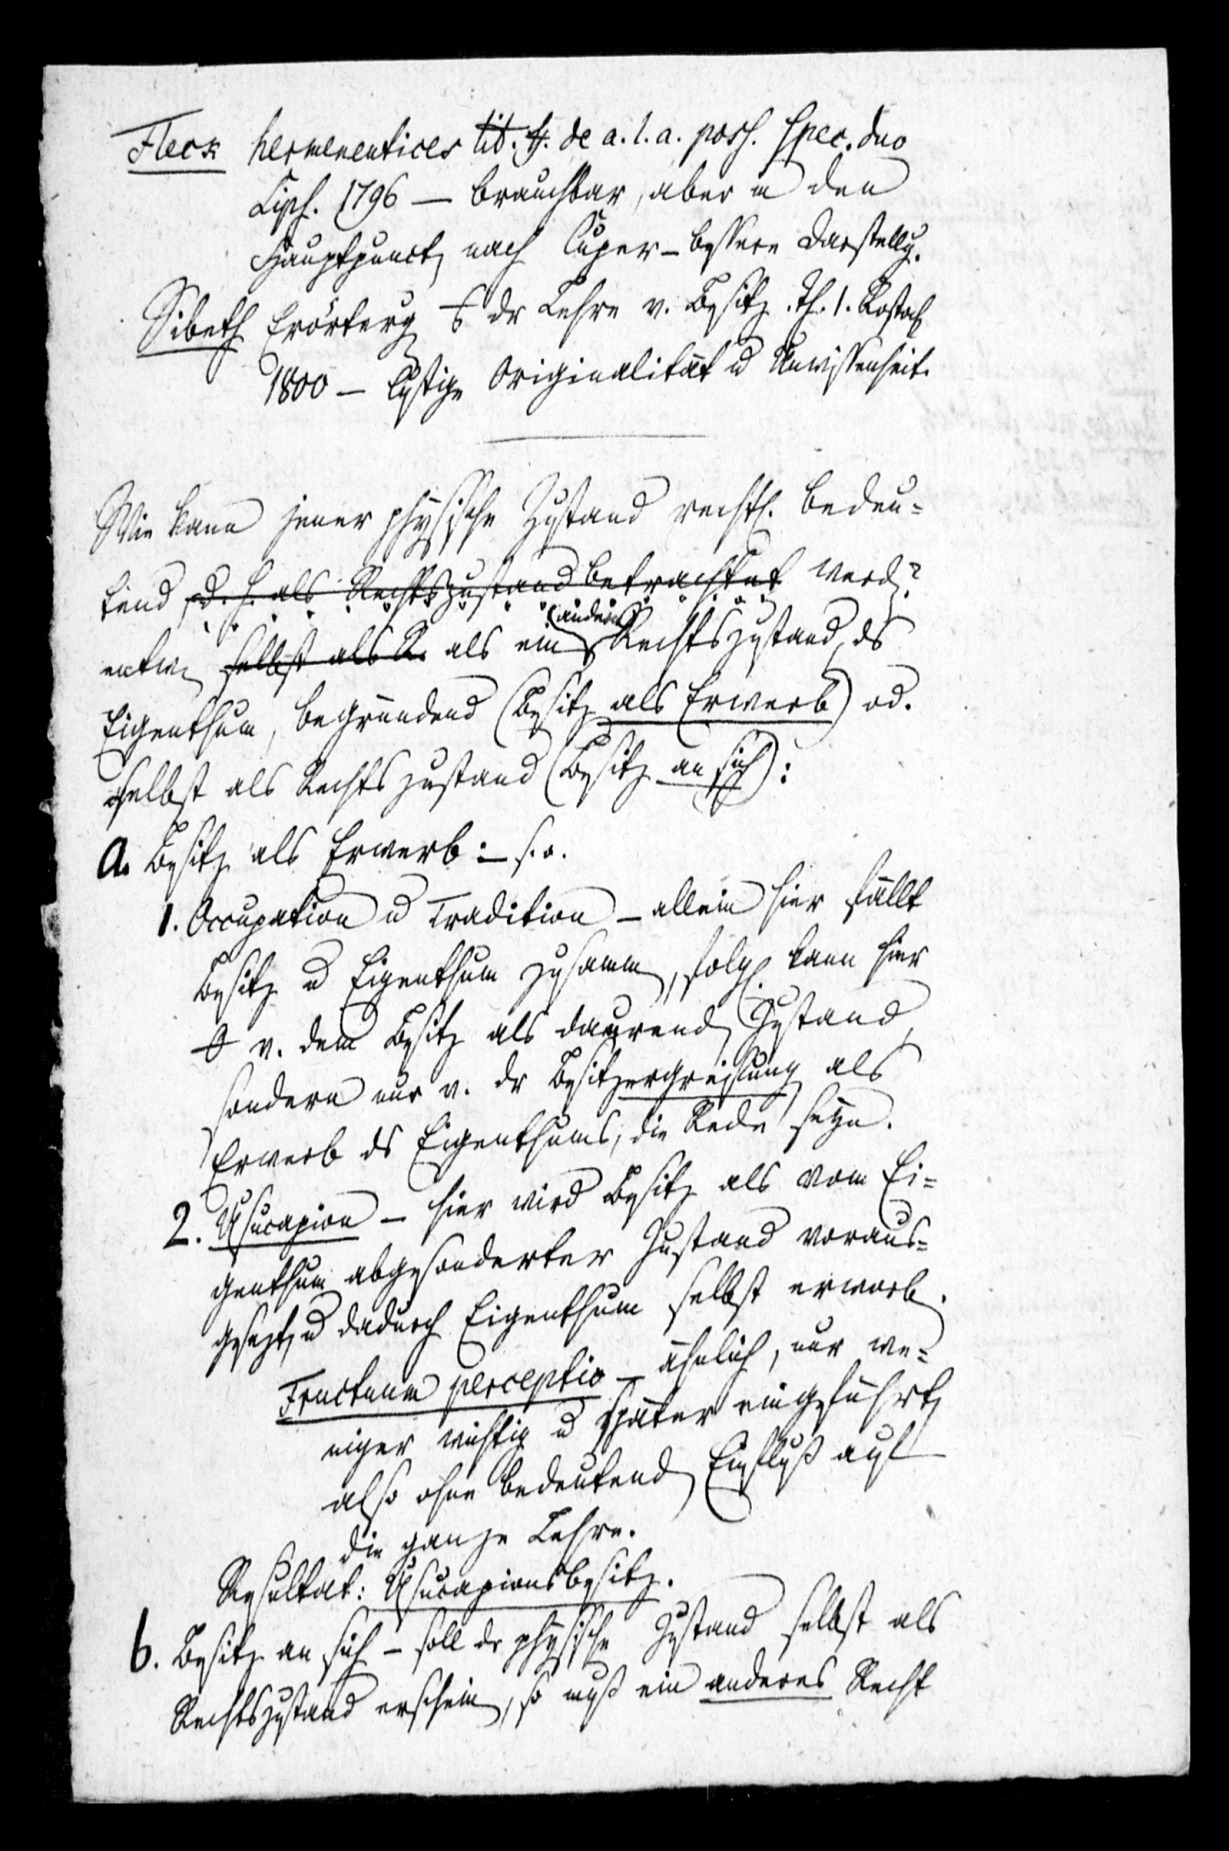 Fleck hermeneutices tit. ff. de a. l. a. poss. spec. duo
Lips. 1796 — brauchbar, aber in den
Hauptpunct nach Cuper – bessere Darstellg.
Sibeth Erörterg dr Lehre v. Besitz. Th. 1. Rostock
1800 — lustige Originalität u Unwissenheit.
Wie kann jener physische Zustand rechtl. bedeu-
tend d. h. als Rechtszustand betrachtet werd?
andern
entw. selbst als R. als ein Rechtszustand, ds
Eigenthum, begründend (Besitz als Erwerb) od.
selbst als Rechtszustand (Besitz an sich):
a. Besitz als Erwerb: – s. o.
1. Occupation u Tradition – allein hier fällt
Besitz u Eigenthum zusamm, folgl. kann hier
v. dem Besitz als daurend Zustand,
sondern nur v. dr Besitzergreifung als
Erwerb ds Eigenthums, die Rede seyn.
2. Usucapion – hier wird Besitz als vom Ei-
genthum abgesonderter Zustand voraus-
gesezt, u dadurch Eigenthum selbst erworb.
Fructuum perceptio – ähnlich, nur we-
niger wichtig u später eingeführt,
also ohne bedeutend Einfluß auf
die ganze Lehre.
Resultat: Usucapionsbesitz.
b. Besitz an sich – soll dr physische Zustand selbst als
Rechtszustand erschein, so muß ein anderes Recht